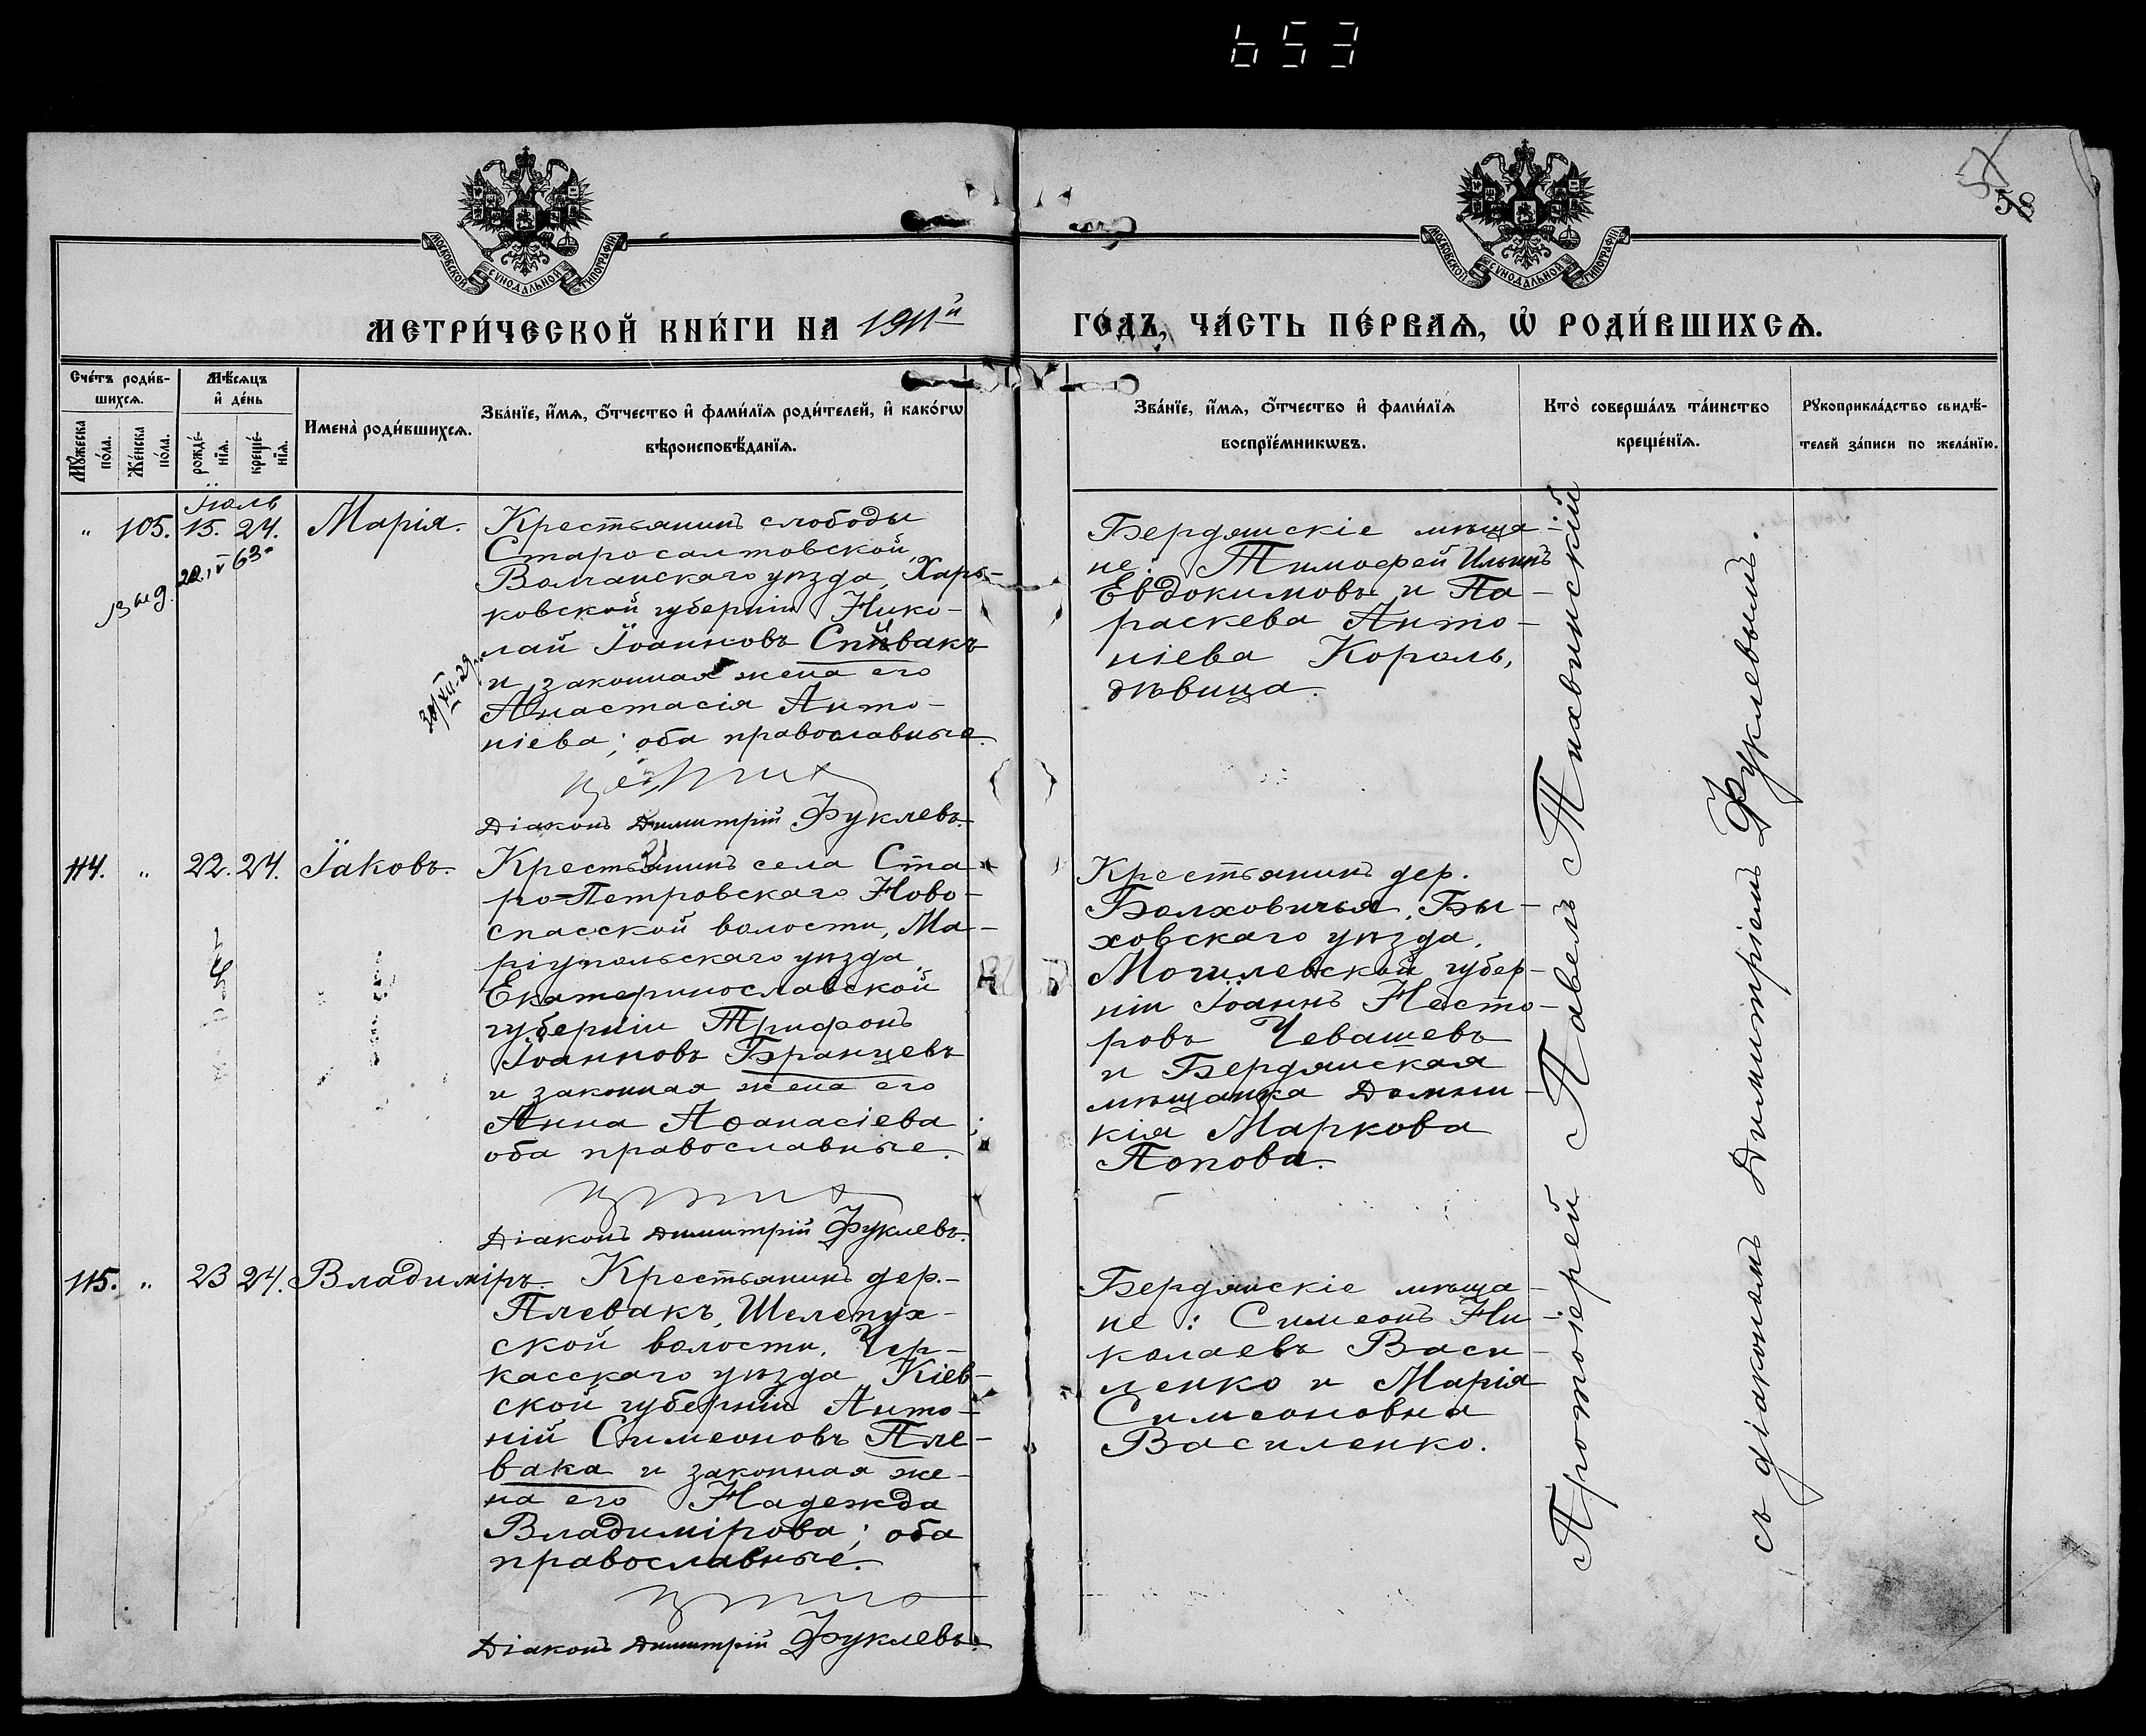 653
57
58
МОСКОВСКОЙ СУНОДАЛЬНОЙ ТИПОГРАФІИ
МОСКОВСКОЙ СУНОДАЛЬНОЙ ТИПОГРАФІИ
МЕТРИ́ЧЕСКОЙ КНИ́ГИ НА 1911й
ГО́ДЪ, ЧА́СТЬ ПЕ́РВАѦ, Ѡ҆ РОДИ́ВШИХСѦ.
Счéтъ роди́в-
шихсѧ.
Мꙋ́жеска
по́ла.
Же́нска
по́ла.
Мѣ́сѧцъ
и҆ де́нь
рожде́-
нїѧ.
креще́-
нїѧ.
Имена̀ роди́вшихсѧ.
Зва́нїе, и҆́мѧ, ѻ҆́тчество и҆ фами́лїѧ роди́телей, и҆ како́гѡ
вѣроисповѣ́данїѧ.
Зва́нїе, и҆́мѧ, ѻ҆́тчество и҆ фами́лїѧ
воспрїе́мникѡвъ.
Кто̀ соверша́лъ та́инство
креще́нїѧ.
Рꙋкоприкла́дство свидѣ́-
телей за́писи по жела́нїю.
Іюль
" 105. 15. 24. Марія.
Крестьянинъ слободы
Старосалтовской,
Волчанскаго уѣзда, Харь-
ковской губерніи Нико-
лай Іоанновъ Спивакъ
и законная жена его
Анастасія Анто-
ніева; оба православные.
Діаконъ Димитрій Фуклевъ.
Бердянскіе мѣща-
не: Тимофей Ильинъ
Евдокимовъ и Па-
раскева Анто-
ніева Король,
дѣвица.
114. " 22. 24. Іаковъ.
Крестьянинъ села Ста-
ро-Петровскаго Ново-
спасской волости, Ма-
ріупольскаго уѣзда
Екатеринославской
губерніи Трифонъ
Іоанновъ Бранцевъ
и законная жена его
Анна Аѳанасіева;
оба православные.
Діаконъ Димитрій Фуклевъ.
Крестьянинъ дер.
Болховичья, Бы-
ховскаго уѣзда,
Могилевской губер-
ніи Іоаннъ Несто-
ровъ Чевашевъ
и Бердянская
мѣщанка Домни-
кія Маркова
Попова.
115. " 23 24. Владиміръ.
Крестьянинъ дер.
Плевакъ, Шелепух-
ской волости, Чер-
касскаго уѣзда Кіев-
ской губерніи Анто-
ній Симеоновъ Пле-
вака и законная же-
на его Надежда
Владимірова; оба
православные.
Діаконъ Димитрій Фуклевъ.
Бердянскіе мѣща-
не: Симеонъ Ни-
колаевъ Васи-
ленко и Марія
Симеоновна
Василенко.
Протоіерей Павелъ Тихвинскій
съ діакономъ Димитріемъ Фуклевымъ.